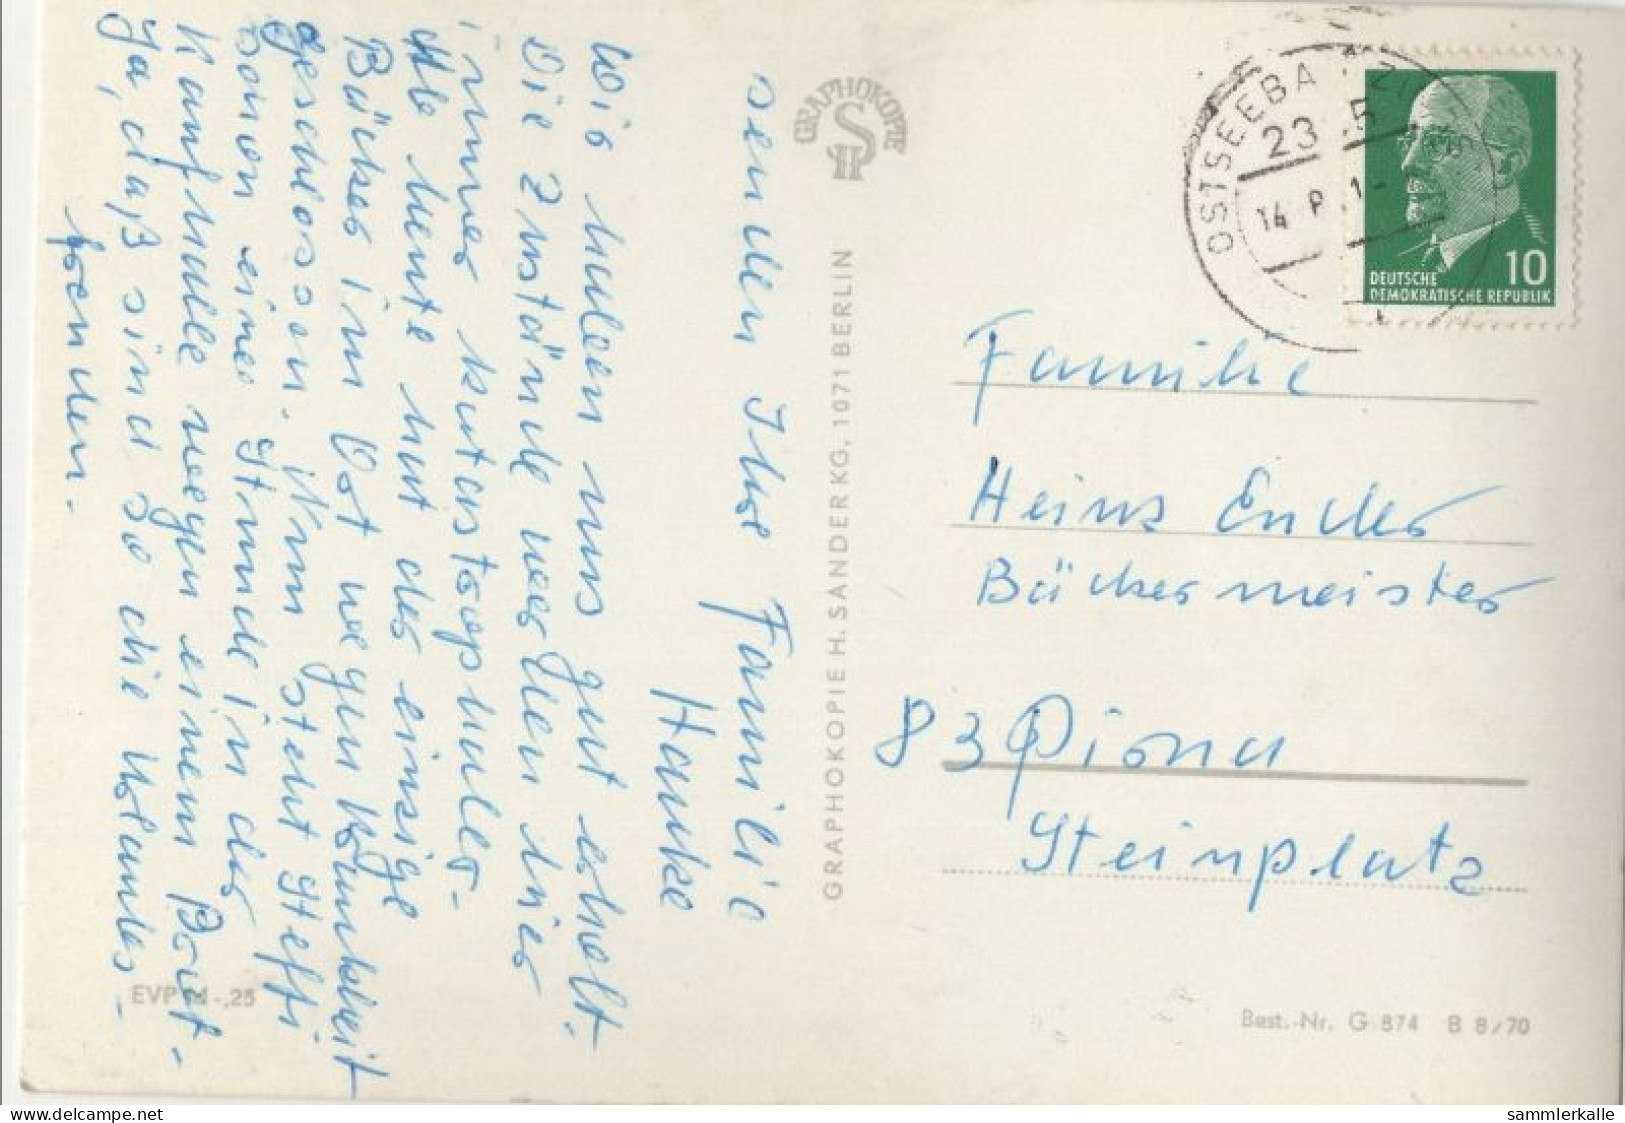 senden Ihre Familie
Hanke
Wir haben uns gut erholt.
Die Zustände werden hier
immer katastrophaler.
Ab heute hat der einzige
Bäcker im Ort wegen Krankheit
geschlossen. Nun steht Steffi
schon eine Stunde in der
Kaufhalle wegen einem Brot.
Ja, daß sind so die Urlaubs-
freuden.
GRAPHOKOPIE
H S
GRAPHOKOPIE H. SANDER KG, 1071 BERLIN
EVP M -,25
OSTSEEBA ZI
23
5
14. 1-
DEUTSCHE
DEMOKRATISCHE REPUBLIK
10
Familie
Heinz Ender
Bäckermeister
83 Pirna
Steinplatz
Best.-Nr. G 874 B 8/70
www.delcampe.net
sammlerkalle